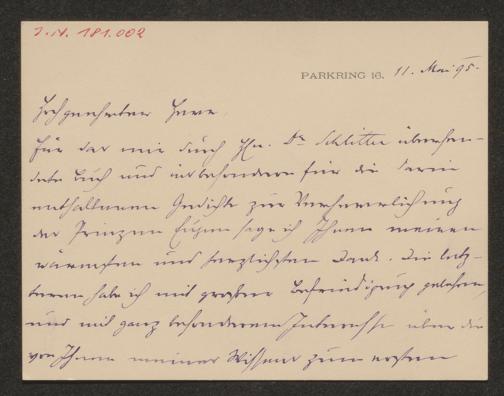 J.N. 181.002
PARKRING 16. 11. Mai 95.
Hochgeehrter Herr.
Für das mir durch Hn. Dr Schlitter übersen-
dete Buch und insbesondere für die darin
enthaltenen Gedichte zur Verherrlichung
des Prinzen Eugen sage ich Ihnen meinen
wärmsten und herzlichsten Dank. Die letz-
teren habe ich mit großer Befriedigung gelesen,
und mit ganz besonderem Interesse über die
von Ihnen meines Wissens zum ersten